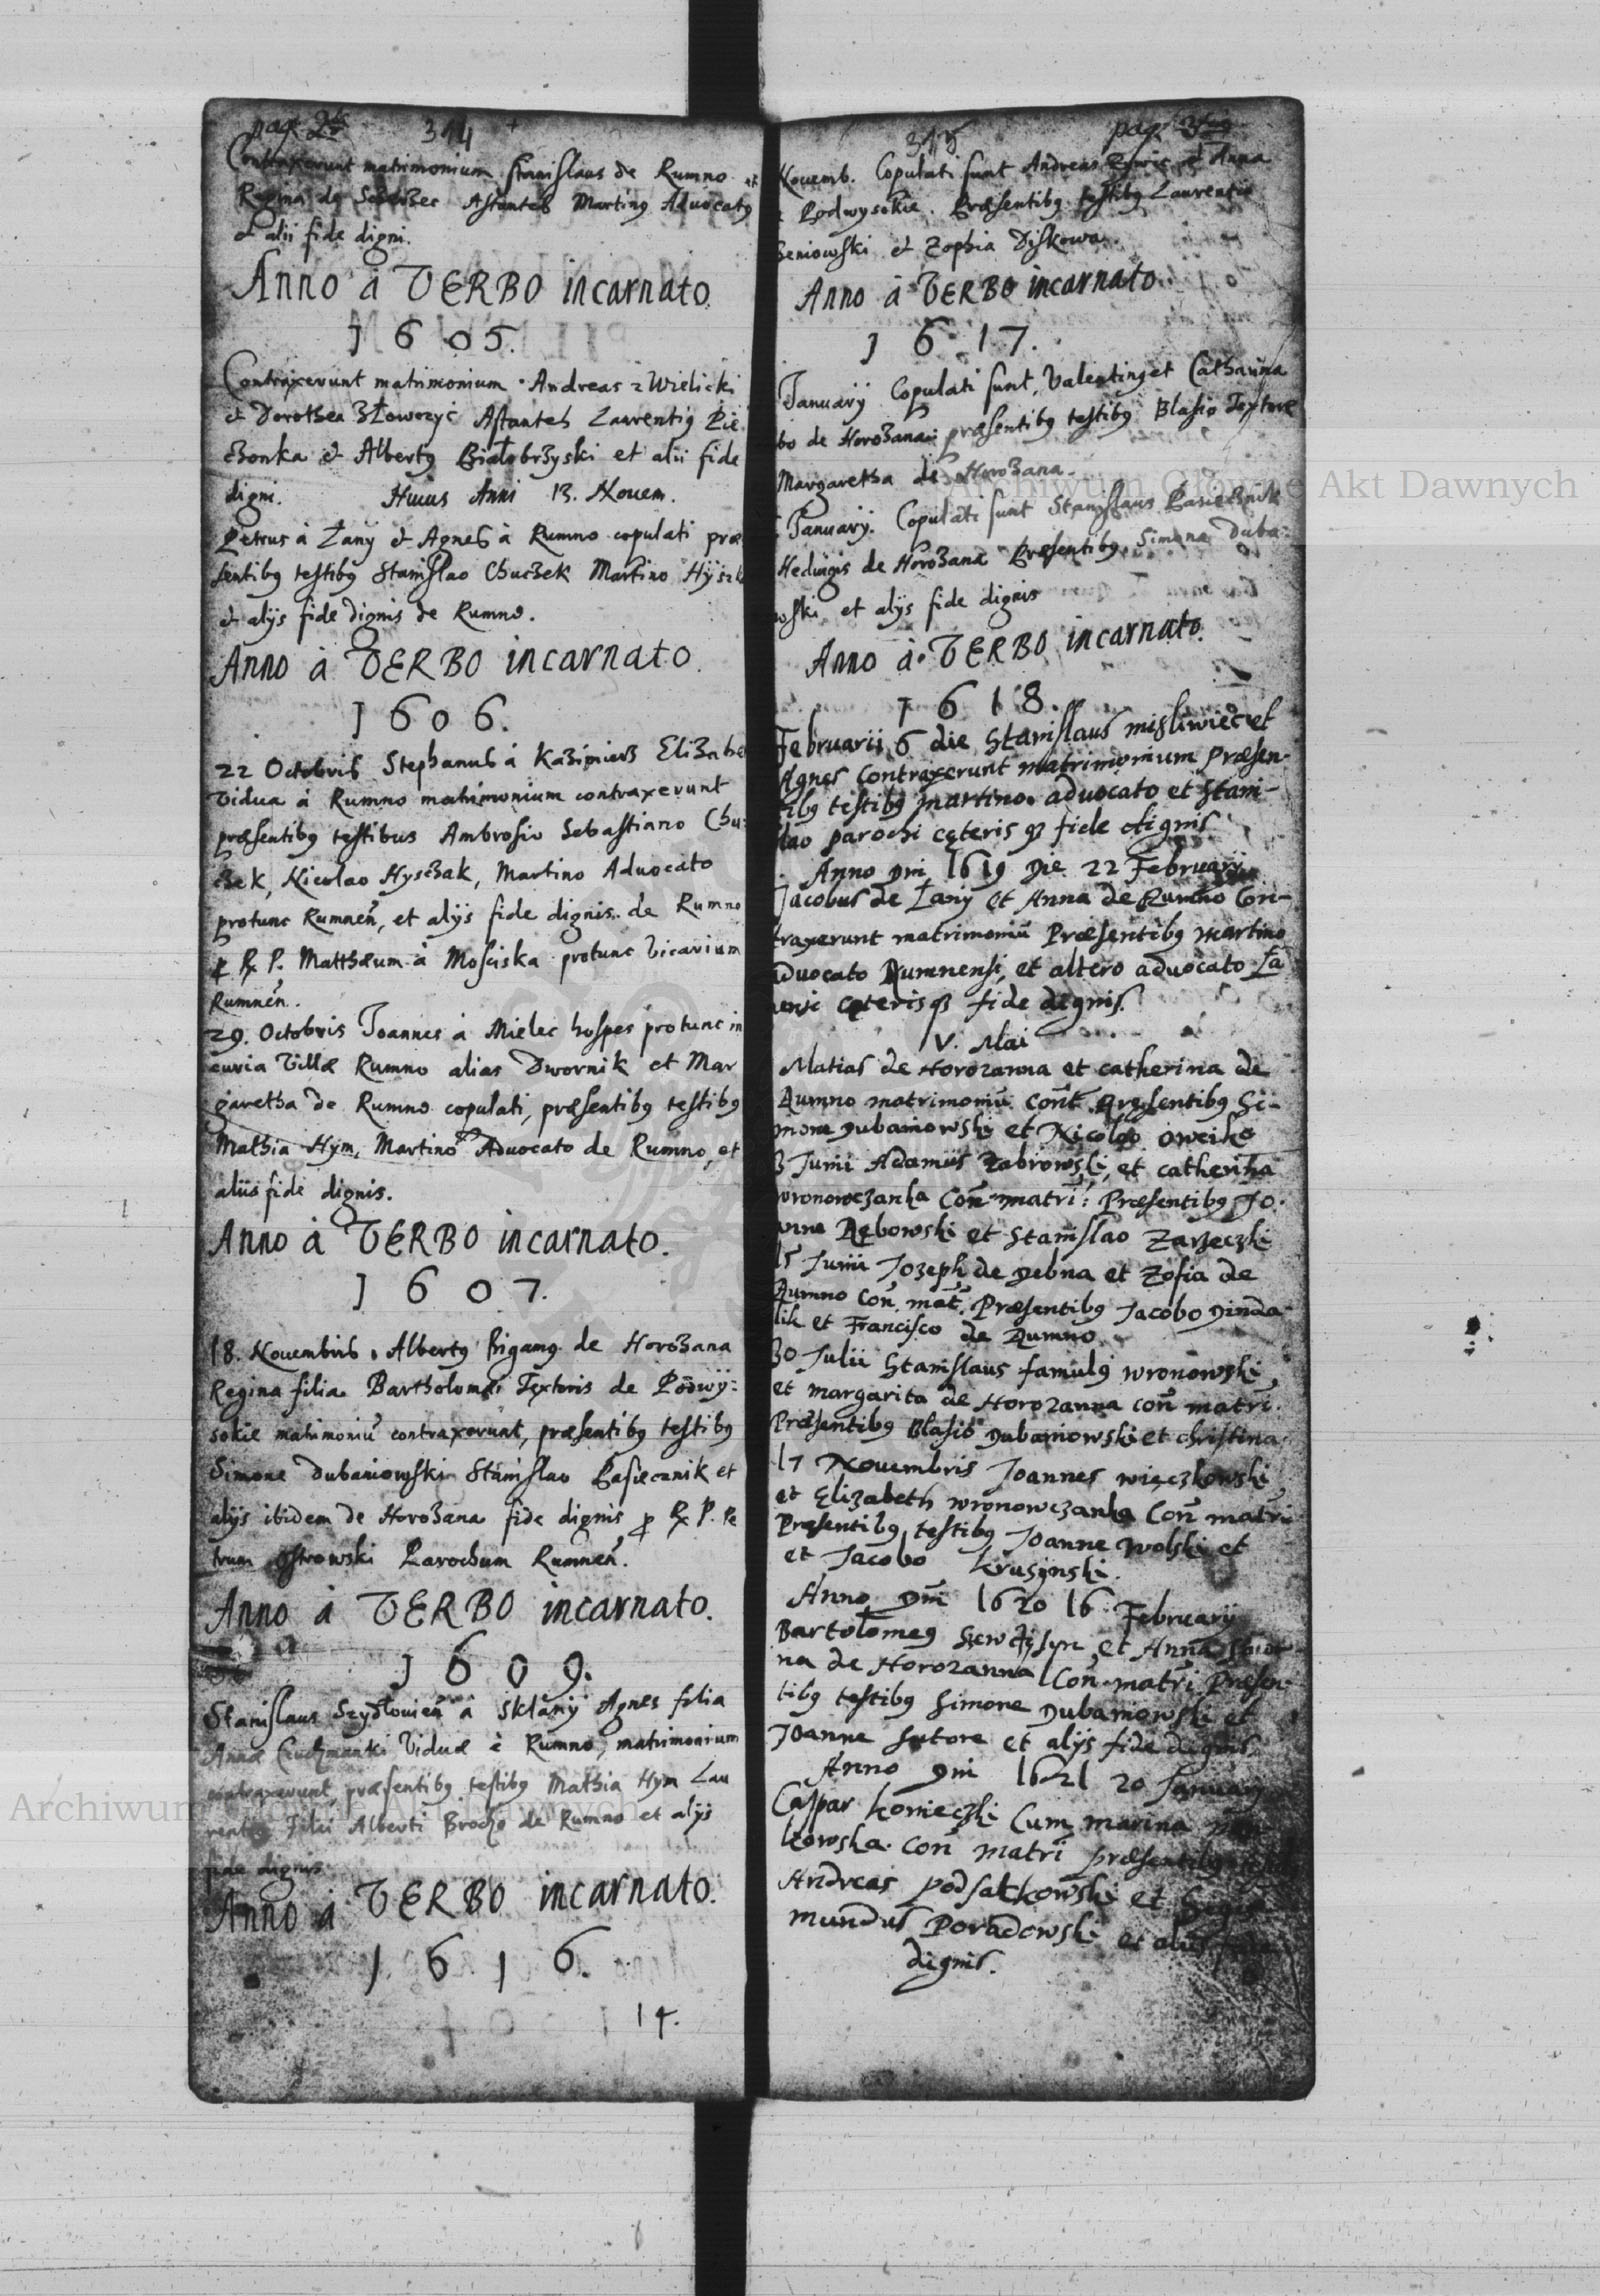 pag 2da
314
Contraxerunt matrimonium Stanislaus de Rumno et
Regina de Astantes Martin9 Advocat9
et alii fide digni.
Anno à VERBO incarnato.
1605.
Contraxerunt matrimonium Andreas z Wielicki
et Dorothea Astantes Laurenti9 Pie
czonka et Albert9 Białobrzyski et alii fide
digni. Huius Anni 13. Novem.
Petrus à Łany et Agnes à Rumno copulati præ
sentib9 testib9 Stanislao Chuczek Martino
et alijs fide dignis de Rumno.
Anno à VERBO incarnato.
1606.
22 Octobris Stephanus à Kazimierz Elizabe
Vidua à Rumno matrimonium contraxerunt
præsentib9 testibus Ambrosio Sebastiano Chu
czek, Nicolao Hysczak, Martino Advocato
protunc Rumneñ, et alijs fide dignis de Rumno
p R. P. Matthæum à Mosciska protunc Vicarium
Rumneñ.
29. Octobris Joannes à Mielec hospes protunc in
curia Villæ Rumno alias Dwornik et Mar
garetha de Rumno copulati, præsentib9 testib9
Mathia Hym, Martino Advocato de Rumno, et
aliis fide dignis.
Anno à VERBO incarnato.
1607.
18. Novembris. Albert9 Bigam9 de Horozana
Regina filia Bartholomæi Textoris de Podwy:
sokie matrimoniũ contraxerunt, præsentib9 testib9
Simone Dubaniowski Stanislao Pasiecznik et
alijs ibidem de Horozana fide dignis p R. P. Pe
trum Ostrowski Parochum Rumneñ.
Anno à VERBO incarnato.
1609.
Stanislaus à Sklany Agnes filia
Annæ Viduæ à Rumno, matrimonium
contraxerunt, præsentib9 testib9 Mathia Hym Lau
Filii Alberti de Rumno et alijs
fide dignis.
Anno à VERBO incarnato.
1616.
14.
315
pag 3tia
Novemb. Copulati sunt Andreas et Anna
Podwysokie. Præsentib9 testib9 Laurentio
Beniowski et Zophia Diskowa.
Anno à VERBO incarnato.
1617.
Januarij Copulati sunt Valentin9 et Catharina
bo de Horozana præsentib9 testib9 Blasio Textore
Margaretha de Horozana.
Januarij. Copulati sunt Stanislaus Pasiecznik
Hedvigis de Horozana Præsentib9 Simone Duba-
woski et alijs fide dignis
Anno à VERBO incarnato.
1618.
Februarii 6 die Stanislaus misliwiec et
Agnes Contraxerunt matrimonium Præsen-
tib9 testib9 martino advocato et Stani-
slao parochi cęterisq3 fide dignis
Anno Dni 1619 Die 22 Februarij
Jacobus de Łany et Anna de Rumno Con-
traxerunt matrimoniũ Præsentib9 Martino
advocato Rumnensi, et altero advocato Ła
nensi cęterisq3 fide dignis.
V. Mai
Matias de Horozanna et catherina de
Rumno matrimoniũ Cont. Præsentib9 Si-
mone Dubaniowski et Nicolao oweiko
3 Junii Adamus Zabrowski, et catherina
wronowczanka Coñ matri: Præsentib9 Jo.
anne Rębowski et Stanislao Zarzeczki
15 Junii Jozeph de Debna et Zofia de
Rumno Coñ mat. Præsentib9 Jacobo Dinda
lik et Francisco de Rumno
30 Julii Stanislaus famul9 wronowski,
et margarita de Horozanna coñ matri.
Præsentib9 Blasio Dubaniowski et christina
17 Novembris Joannes więczkowski
et Elizabeth wronowczanka Coñ matri
Præsentib9 testib9 Joanne Wolski et
et Jacobo krusynski.
Anno Dni 1620 16 February
Bartolome9 et Anna
na de Horozanna Coñ matri Præsen-
tib9 testib9 Simone Dubaniowski et
Joanne Sutore et alijs fide dignis
Anno Dni 1621 20 January
Caspar konieczki Cum marina
kowska. Coñ matri præsentib9
Andreas podsatkowski et Sigis
mundus Poradowski et aliis fide
dignis.
Archiwum Główne Akt Dawnych
Archiwum Główne Akt Dawnych